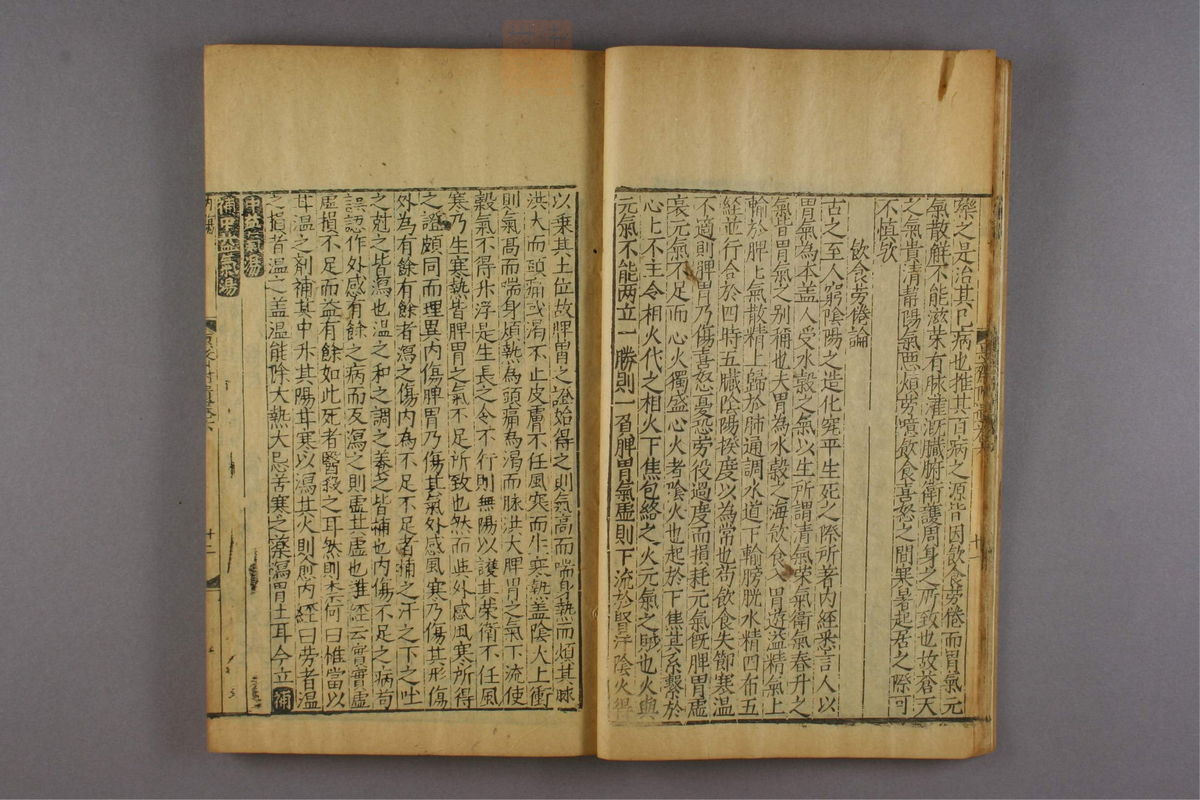 療之是治其已病也推其百病之源皆因飲食勞倦而胃氣元
氣散鮮不能滋榮百脉灌漑臟腑衛護周身之所致也故蒼天
之氣貴清静陽氣惡煩勞噫飲食喜怒之間寒暑起居之際可
不慎欤
飲食勞倦論
古之至人窮陰陽之造化究乎生死之際所著内經悉言人以
胃氣為本盖人受水穀之氣以生所謂清氣榮氣衛氣春升之
氣皆胃氣之别稱也夫胃為水穀之海飲食入胃遊溢精氣上
輸於脾脾氣散精上歸於肺通調水道下輸膀胱水精四布五
經並行合於四時五臟陰陽揆度以為常也苟飲食失節寒温
不適則脾胃乃傷喜怒憂恐勞役過度而損耗元氣既脾胃虚
衰元氣不足而心火獨盛心火者陰火也起於下焦其系繫於
心上不主令相火代之相火下焦包絡之火元氣之賊也火與
元氣不能两立一勝則一負脾胃氣虚則下流於腎肝陰火得
以乗其土位故脾胃之證始得之則氣高而喘身熱而煩其脉
洪大而頭痛或渴不止皮膚不任風寒而生寒熱盖陰火上衝
則氣高而喘身煩熱為頭痛為渴而脉洪大脾胃之氣下流使
穀氣不得升浮是生長之令不行則無陽以護其榮衛不任風
寒乃生寒熱皆脾胃之氣不足所致也然而此外感風寒所得
之證頗同而理異内傷脾胃乃傷其氣外感風寒乃傷其形傷
外為有餘有餘者瀉之傷内為不足不足者補之汗之下之吐
之尅之皆瀉也温之和之調之養之皆補也内傷不足之病苟
誤認作外感有餘之病而反瀉之則虚其虚也難經云實實虚
虚損不足而益有餘如此死者醫殺之耳然則柰何曰惟當以
甘温之剤補其中升其陽甘寒以瀉其火則愈内經曰勞者温
之損者温之盖温能除大熱大忌苦寒之藥瀉胃土耳今立補
中益氣湯
補中益氣湯